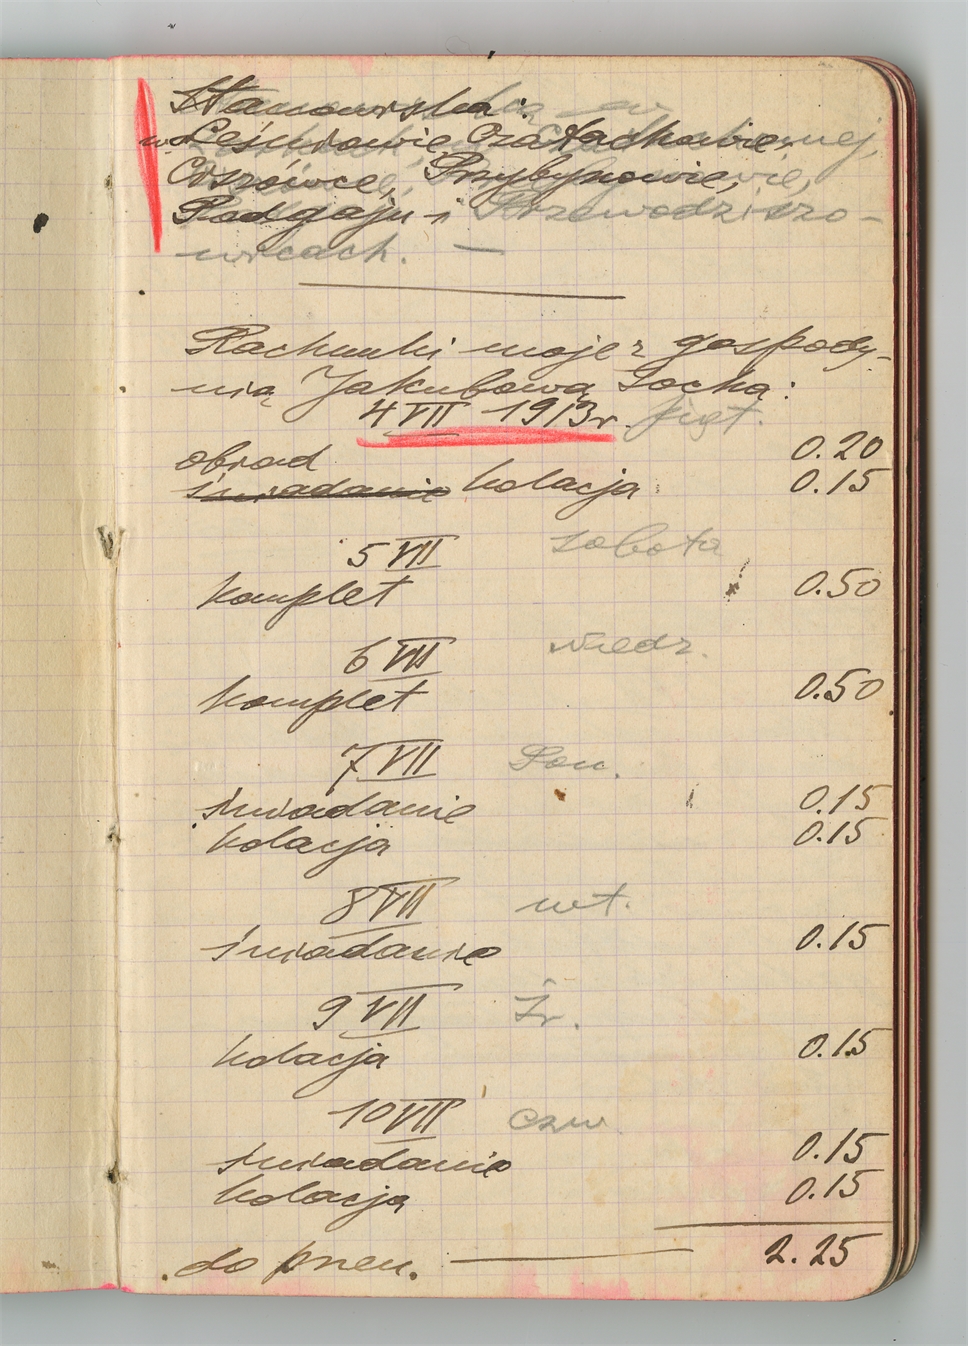 Stanowiska:
w Leśniowie, Czatachowie,
Coszówce, Przybynowie,
Podgaju i Przewodziszo-
wicach. —
Rachunki moje z gospody-
nią Jakubową Sochą:
4 VII 1913 r. piąt.
obiad 0.20
śniadanie kolacja 0.15
5 VII sobota
komplet 0.50
6 VII niedz.
komplet 0.50
7 VII Pon.
śniadanie 0.15
kolacja 0.15
8 VII wt.
śniadanie 0.15
9 VII Śr.
kolacja 0.15
10 VII czw
śniadanie 0.15
kolacja 0.15
do pren. — 2.25